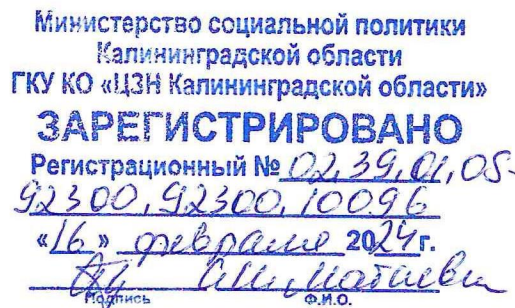 Министерство социальной политики
Калининградской области
ГКУ КО «ЦЗН Калининградской области»
ЗАРЕГИСТРИРОВАНО
Регистрационный № 02,39,01,05-
92300,92300,10096
«16» февраля 2024 г.
Подпись Ф.И.О.